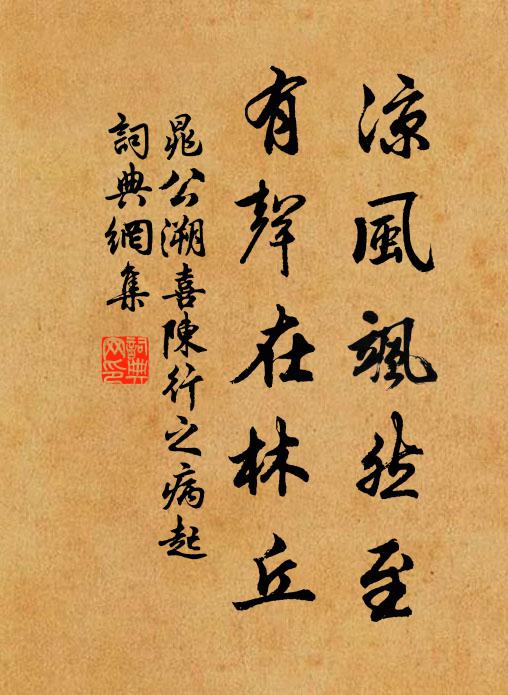 涼風颯然至
有聲在林丘
晁公溯喜陳行之病起
詞典網集
詞典網印